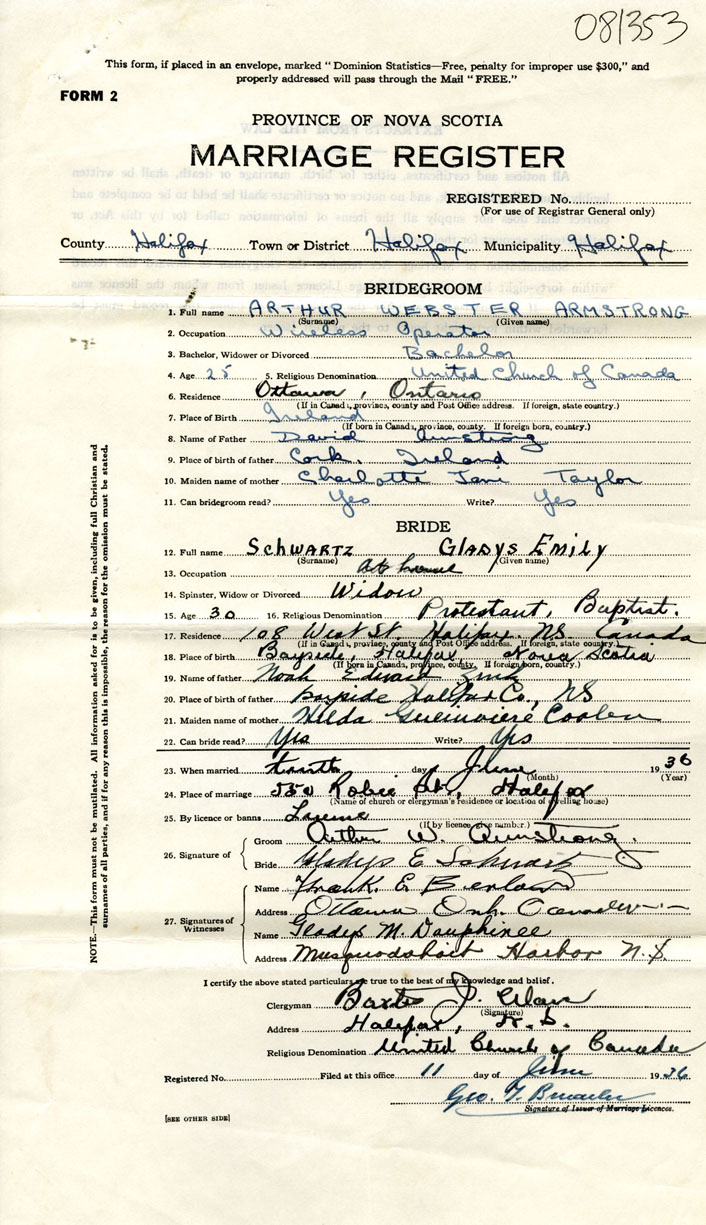 08/353
This form, if placed in an envelope, marked “Dominion Statistics—Free, penalty for improper use $300,” and
properly addressed will pass through the Mail “FREE.”
FORM 2
PROVINCE OF NOVA SCOTIA
MARRIAGE REGISTER
REGISTERED No.
(For use of Registrar General only)
County Halifax Town or District Halifax Municipality Halifax
BRIDEGROOM
1. Full name ARTHUR WEBSTER ARMSTRONG
(Surname) (Given name)
2. Occupation Wireless Operator
3. Bachelor, Widower or Divorced Bachelor
4. Age 25 5. Religious Denomination United Church of Canada
6. Residence Ottawa, Ontario
(If in Canada, province, county and Post Office address. If foreign, state country.)
7. Place of Birth Ireland
(If born in Canada, province, county. If foreign born, country.)
8. Name of Father David Armstrong
9. Place of birth of father Cork, Ireland
10. Maiden name of mother Charlotte Jane Taylor
11. Can bridegroom read? Yes Write? Yes
BRIDE
12. Full name SCHWARTZ GLADYS EMILY
(Surname) (Given name)
13. Occupation At home
14. Spinster, Widow or Divorced Widow
15. Age 30 16. Religious Denomination Protestant, Baptist.
17. Residence 108 West St. Halifax. NS. Canada
(If in Canada, province, county and Post Office address. If foreign, state country.)
18. Place of birth Bayside, Halifax, Nova Scotia
(If born in Canada, province, county. If foreign born, country.)
19. Name of father Noah Edward
20. Place of birth of father Bayside Halifax Co., NS
21. Maiden name of mother Hilda Coolen
22. Can bride read? Yes Write? Yes
23. When married tenth day of June 1936
(Month) (Year)
24. Place of marriage 550 Robie St., Halifax
(Name of church or clergyman's residence or location of dwelling house)
25. By licence or banns License
(If by licence, give number.)
26. Signature of
Groom Arthur W. Armstrong.
Bride Gladys E Schwartz
27. Signatures of Witnesses
Name Frank E
Address Ottawa Ont. Canada
Name Gladys M. Dauphinee
Address Musquodoboit Harbor N.S.
I certify the above stated particulars are true to the best of my knowledge and belief.
Clergyman J.
(Signature)
Address Halifax, N.S.
Religious Denomination United Church of Canada
Registered No. Filed at this office 11 day of June 1936
Geo.
Signature of Issuer of Marriage Licences.
[SEE OTHER SIDE]
NOTE.—This form must not be mutilated. All information asked for is to be given, including full Christian and
surnames of all parties, and if for any reason this is impossible, the reason for the omission must be stated.